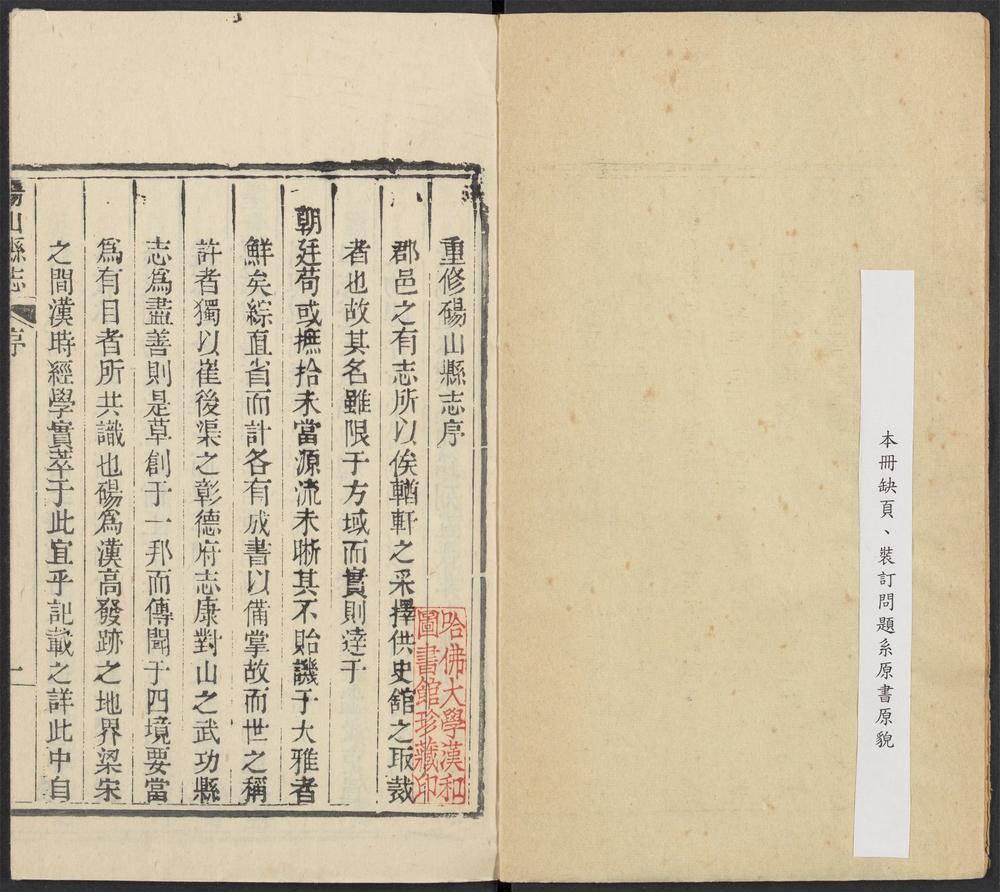 本冊缺頁、裝訂問題系原書原貌
重修碭山縣志序
郡邑之有志所以俟輶軒之采擇供史館之取裁
者也故其名雖限于方域而實則達于
朝廷苟或摭拾未當源流未晰其不貽譏于大雅者
鮮矣綜直省而計各有成書以備掌故而世之稱
許者獨以崔後渠之彰德府志康對山之武功縣
志為盡善則是草創于一邦而傳聞于四境要當
為有目者所共識也碭為漢高發跡之地界梁宋
之間漢時經學實萃于此宜乎記載之詳此中自
碭山縣志
序
一
哈佛大學漢和
圖書館珍藏印